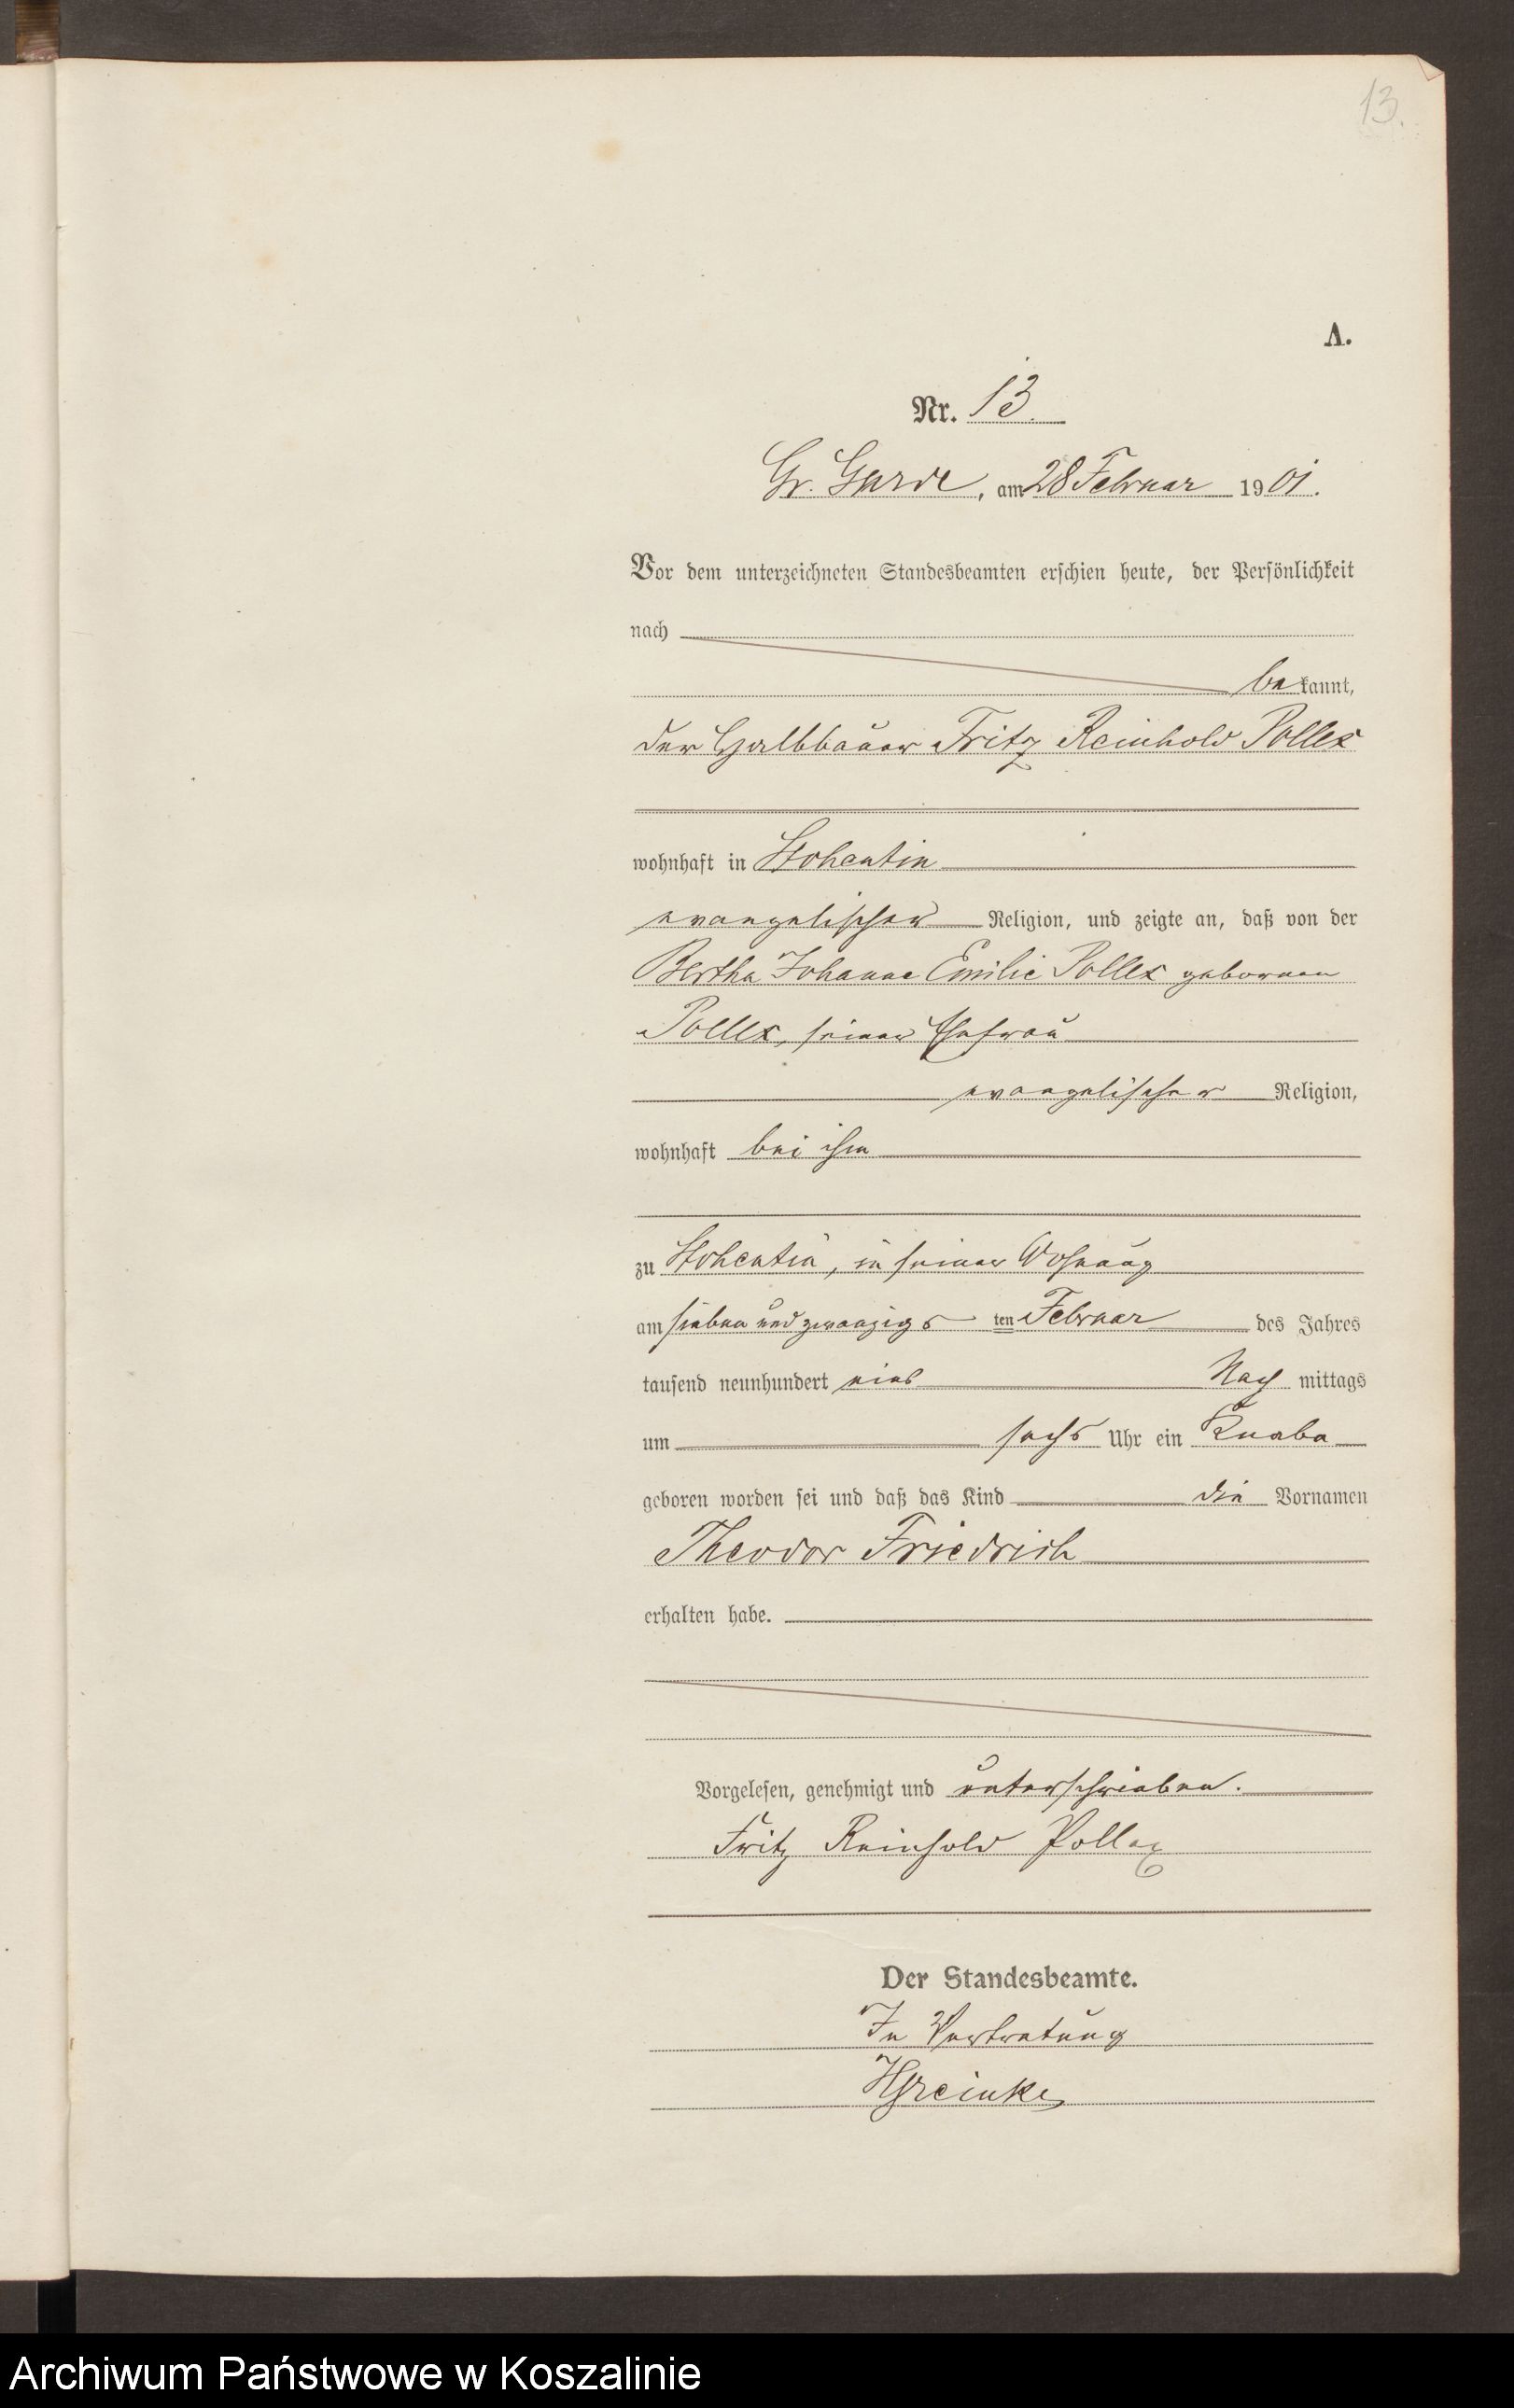 13.
A.
Nr. 13.
Gr. Garde, am 28 Februar 1901.
Vor dem unterzeichneten Standesbeamten erschien heute, der Persönlichkeit
nach
bekannt,
der Halbbauer Fritz Reinhold Pollex
wohnhaft in Stohentin
evangelischer Religion, und zeigte an, daß von der
Bertha Johanne Emilie Pollex geborenen
Pollex, seiner Ehefrau
evangelischer Religion,
wohnhaft bei ihm
zu Stohentin, in seiner Wohnung
am sieben und zwanzigsten Februar des Jahres
tausend neunhundert eins Nachmittags
um sechs Uhr ein Knabe
geboren worden sei und daß das Kind die Vornamen
Theodor Friedrich
erhalten habe.
Vorgelesen, genehmigt und unterschrieben.
Fritz Reinhold Pollex
Der Standesbeamte.
In Vertretung
Archiwum Państwowe w Koszalinie